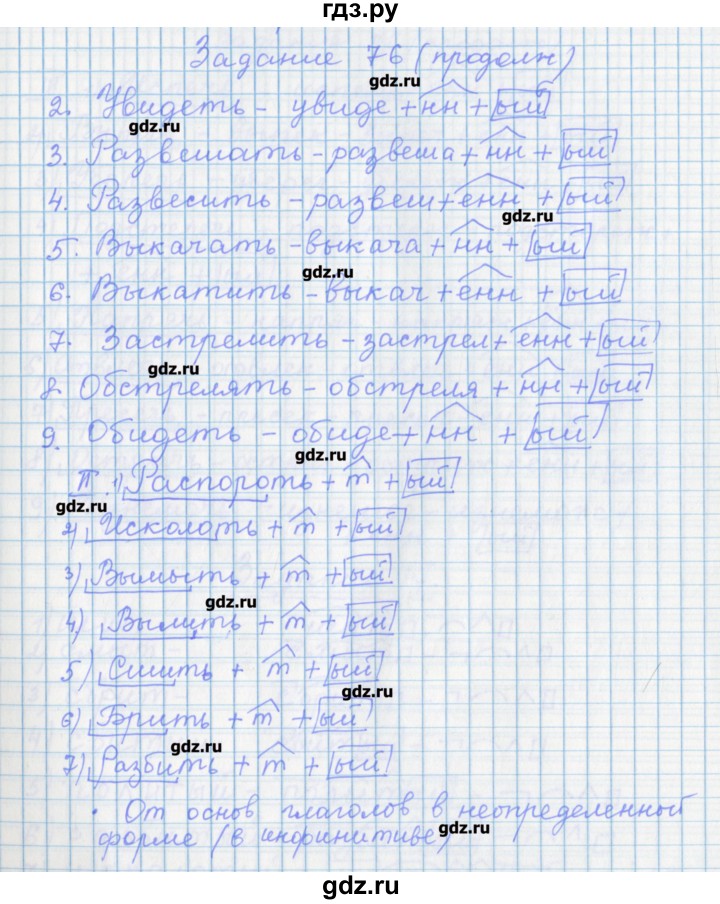 гдз.ру
Задание 76 (продолж)
gdz.ru
2. Увидеть - увиде + нн + ый
gdz.ru
3. Развешать - развеша + нн + ый
4. Развесить - развеш + енн + ый
gdz.ru
5. Выкачать - выкача + нн + ый
gdz.ru
6. Выкатить - выкач + енн + ый
7. Застрелить - застрел + енн + ый
gdz.ru
8 Обстрелять - обстреля + нн + ый
9. Обидеть - обиде + нн + ый
gdz.ru
II. 1) Распороть + т + ый
gdz.ru
2) Исколоть + т + ый
3) Вымыть + т + ый
gdz.ru
4) Вылить + т + ый
5) Сшить + т + ый
gdz.ru
6) Брить + т + ый
gdz.ru
7) Разбить + т + ый
• От основ глаголов в неопределенной
форме (в инфинитиве)
gdz.ru
gdz.ru